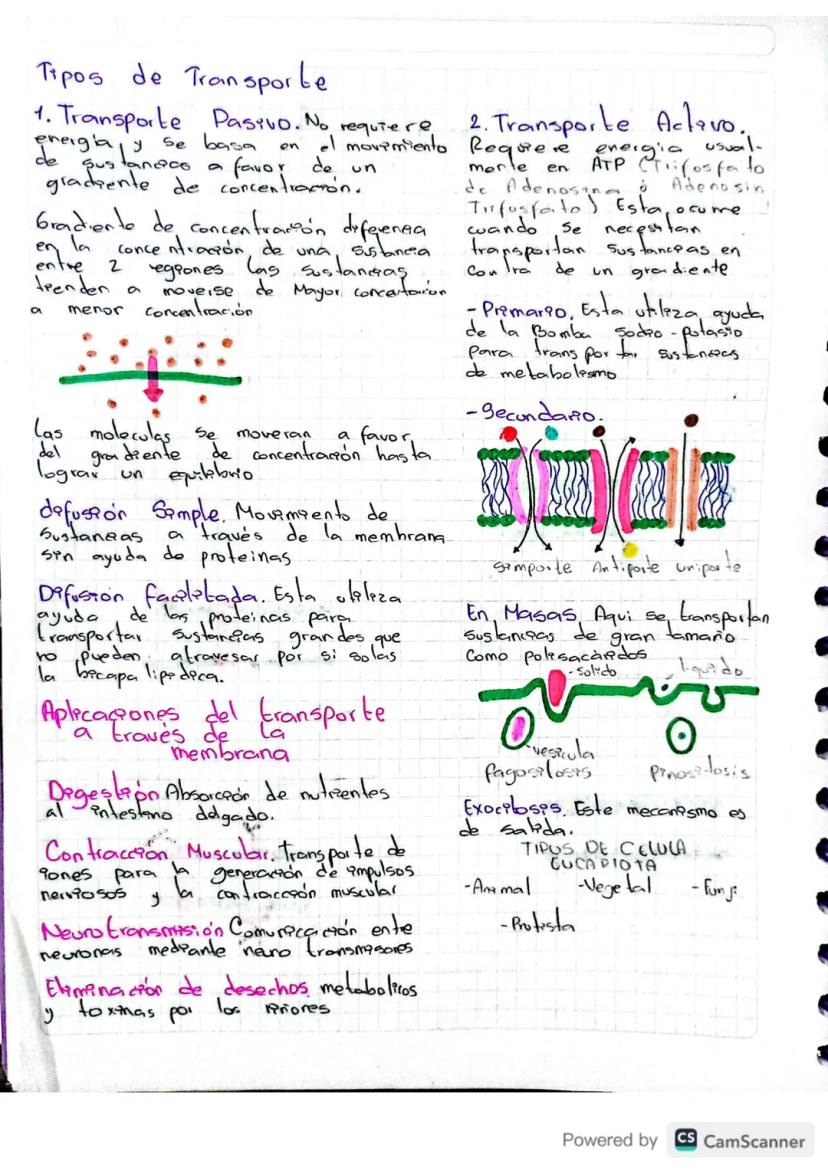 Tipos de Transporte
1. Transporte Pasivo. No requiere
energía y se basa en el movimiento
de sustancias a favor de un
gradiente de concentración.
Gradiente de concentración diferencia
en la concentración de una sustancia
entre 2 regiones las sustancias
tienden a moverse de Mayor concentarion
a menor concentración
las moleculas se moveran a favor
del gradiente de concentración hasta
lograr un equilibrio
difusión Simple. Movimiento de
sustancias a través de la membrana
sin ayuda de proteinas
Difusión facilitada. Esta utiliza
ayuda de las proteinas para
transportar sustancias grandes que
no pueden atravesar por si solas
la bicapa lipidica.
Aplicaciones del transporte
a través de la
membrana
Digestión Absorción de nutrientes
al intestino dalgado.
Contracción Muscular. Transporte de
iones para la generación de impulsos
nerviosos y la contracción muscular
Neurotransmisión Comunicación entre
neuronas mediante neuro transmisores
Eliminación de desechos metabolicos
y toxinas por los riñones
2. Transporte Activo.
Requiere energia usual-
mente en ATP (Trifosfato
de Adenosina ó Adenosin
Trifusfato) Esta ocurre
cuando se necesitan
transportan sustancias en
contra de un gradiente
- Primario. Esta utiliza ayuda
de la Bomba sodio-potasio
para transportar sustancias
de metabolismo
- Secundario.
Simporte Antiporte uniporte
En Masas Aqui se transportan
sustancias de gran tamaño
como polisacáridos
- solido liquido
vesicula
fagositosis Pinositosis
Exocitosis. Este mecanismo es
de salida.
TIPOS DE CELULA
EUCARIOTA
- Animal - Vegetal - Funji
- Protista
Powered by CS CamScanner